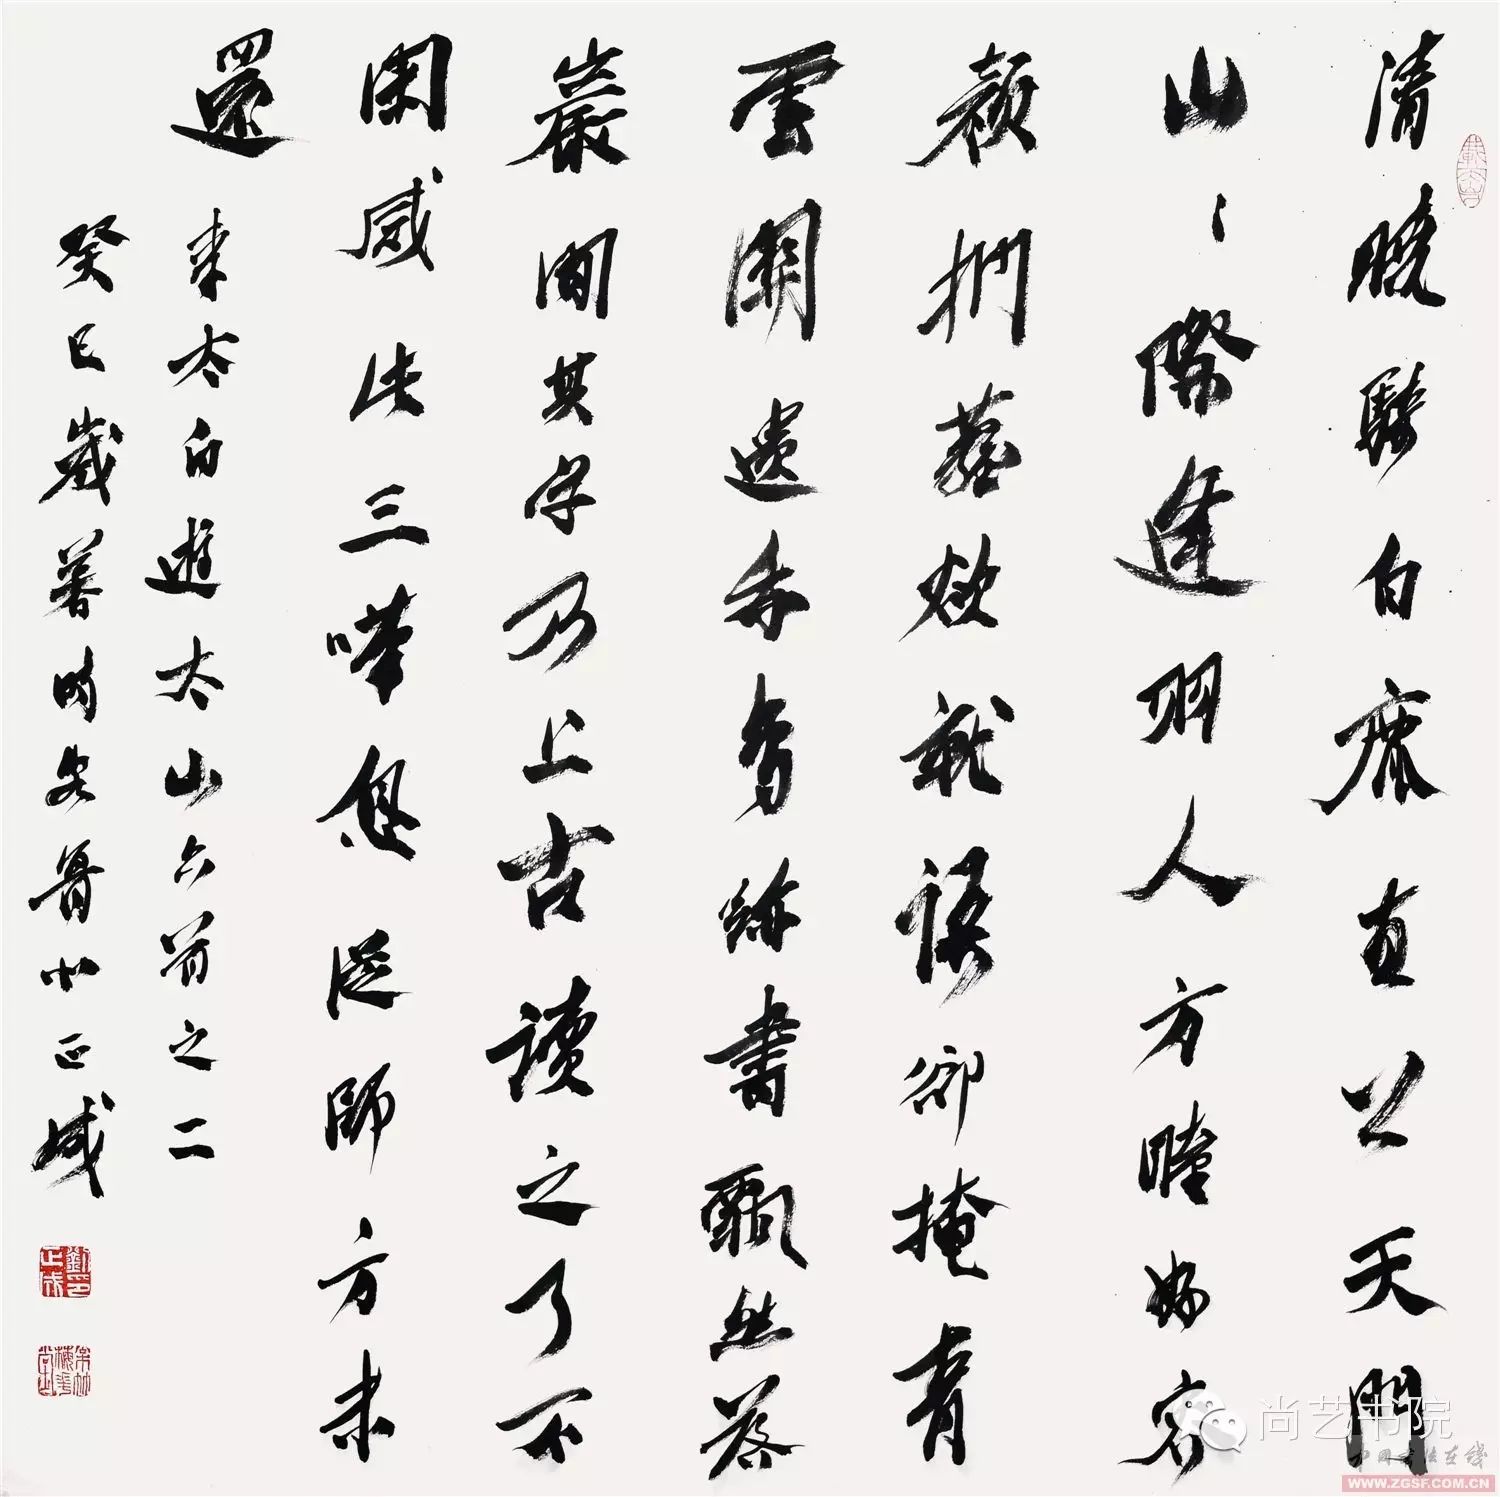 清曉騎白鹿直上天門
山〻際逢羽人方瞳好容
顏捫蘿欲就語卻掩青
雲關遺我鳥跡書飄然落
巖間其字乃上古讀之了不
閑感此三嘆息從師方未
還
李太白遊太山六首之二
癸巳歲暮時客 正成
劉正成印
尚艺书院
中国书法在线
WWW.ZGSF.COM.CN